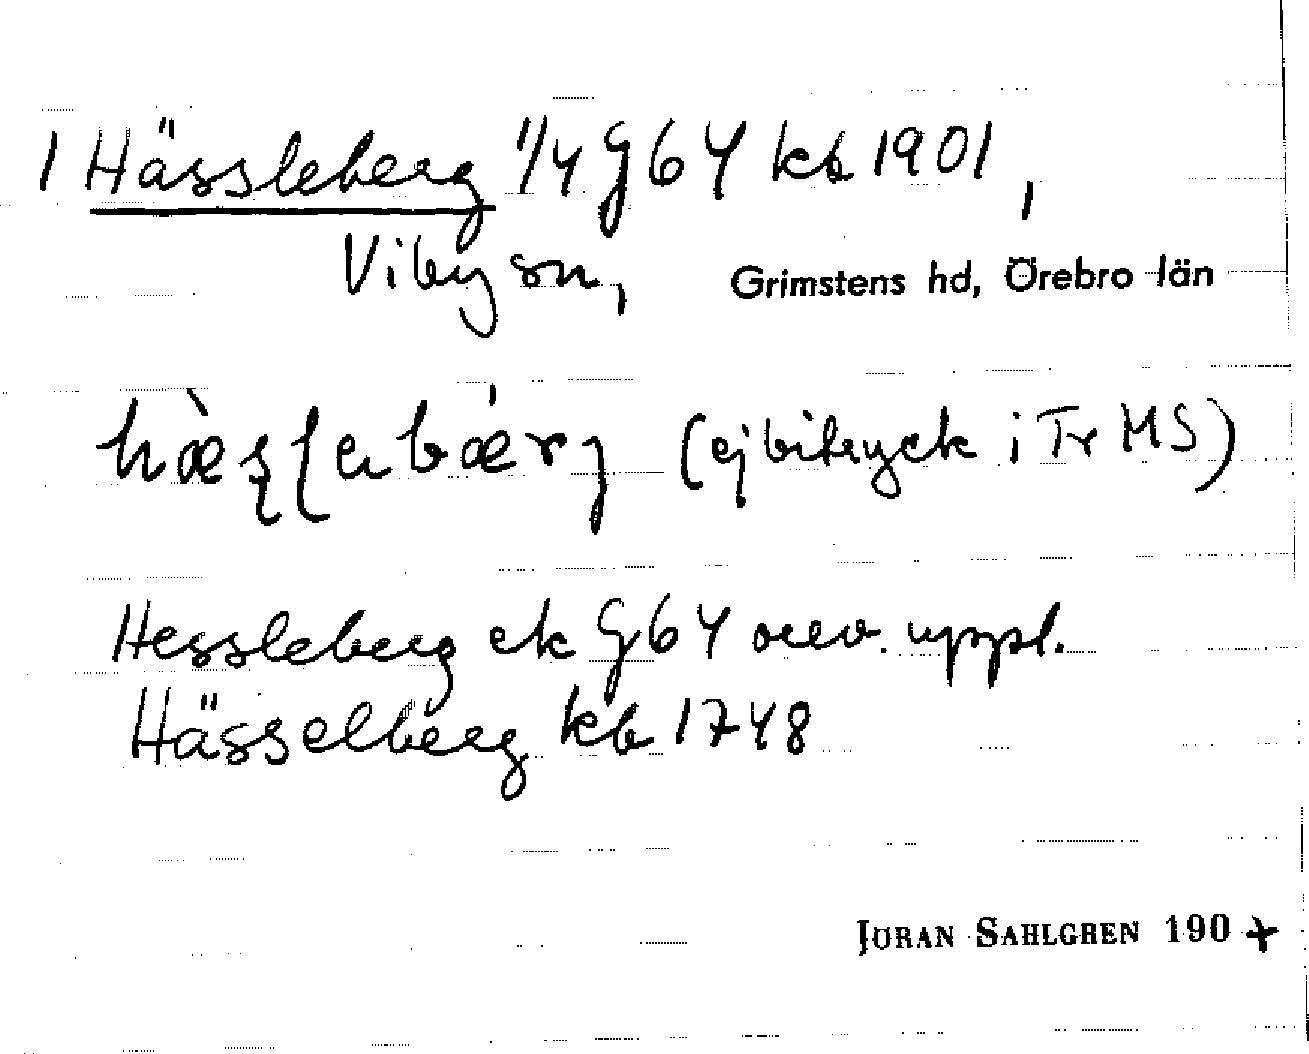 1 Hässleberg 1/4 G64 kb 1901,
Viby sn, Grimstens hd, Örebro län
(ej bitryck i Tr MS)
Hessleberg ek G64 orev. uppl.
Hässelberg kb 1748
JÖRAN SAHLGREN 190+